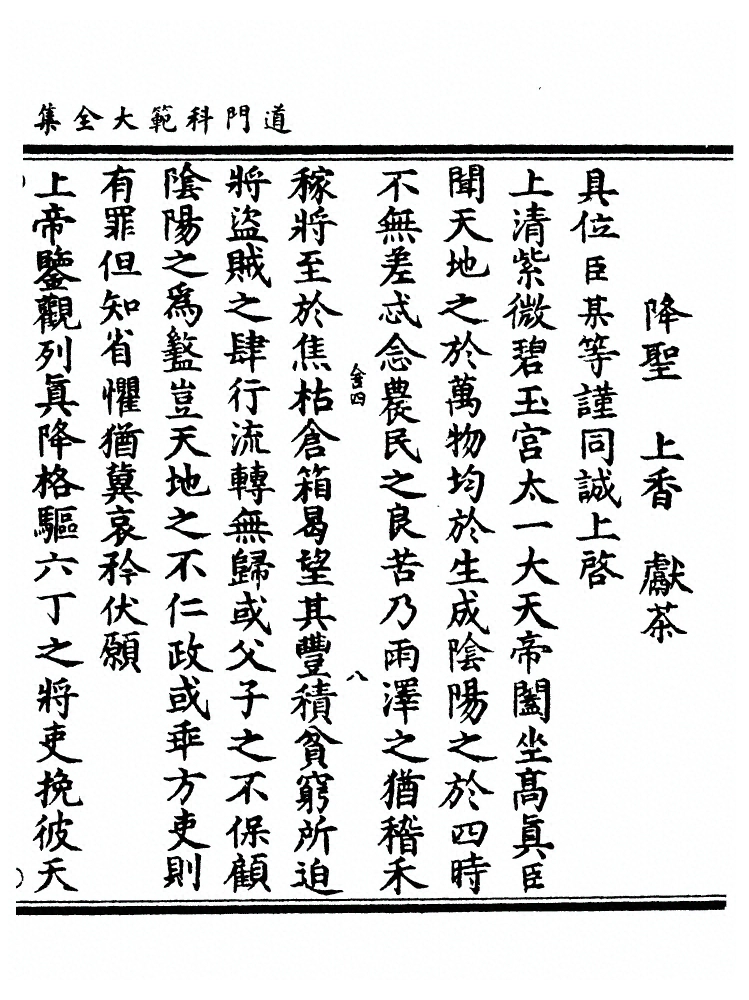 道門科範大全集
降聖　上香　獻茶
具位臣某等謹同誠上啓
上清紫微碧玉宮太一大天帝闔坐髙眞臣
聞天地之於萬物均於生成陰陽之於四時
不無差忒念農民之良苦乃雨澤之猶稽禾
八
稼將至於焦枯倉箱曷望其豐積貧窮所迫
將盜賊之肆行流轉無歸或父子之不保顧
陰陽之爲盭豈天地之不仁政或乖方吏則
有罪但知省懼猶冀哀矜伏願
上帝鑒觀列眞降格驅六丁之將吏挽彼天